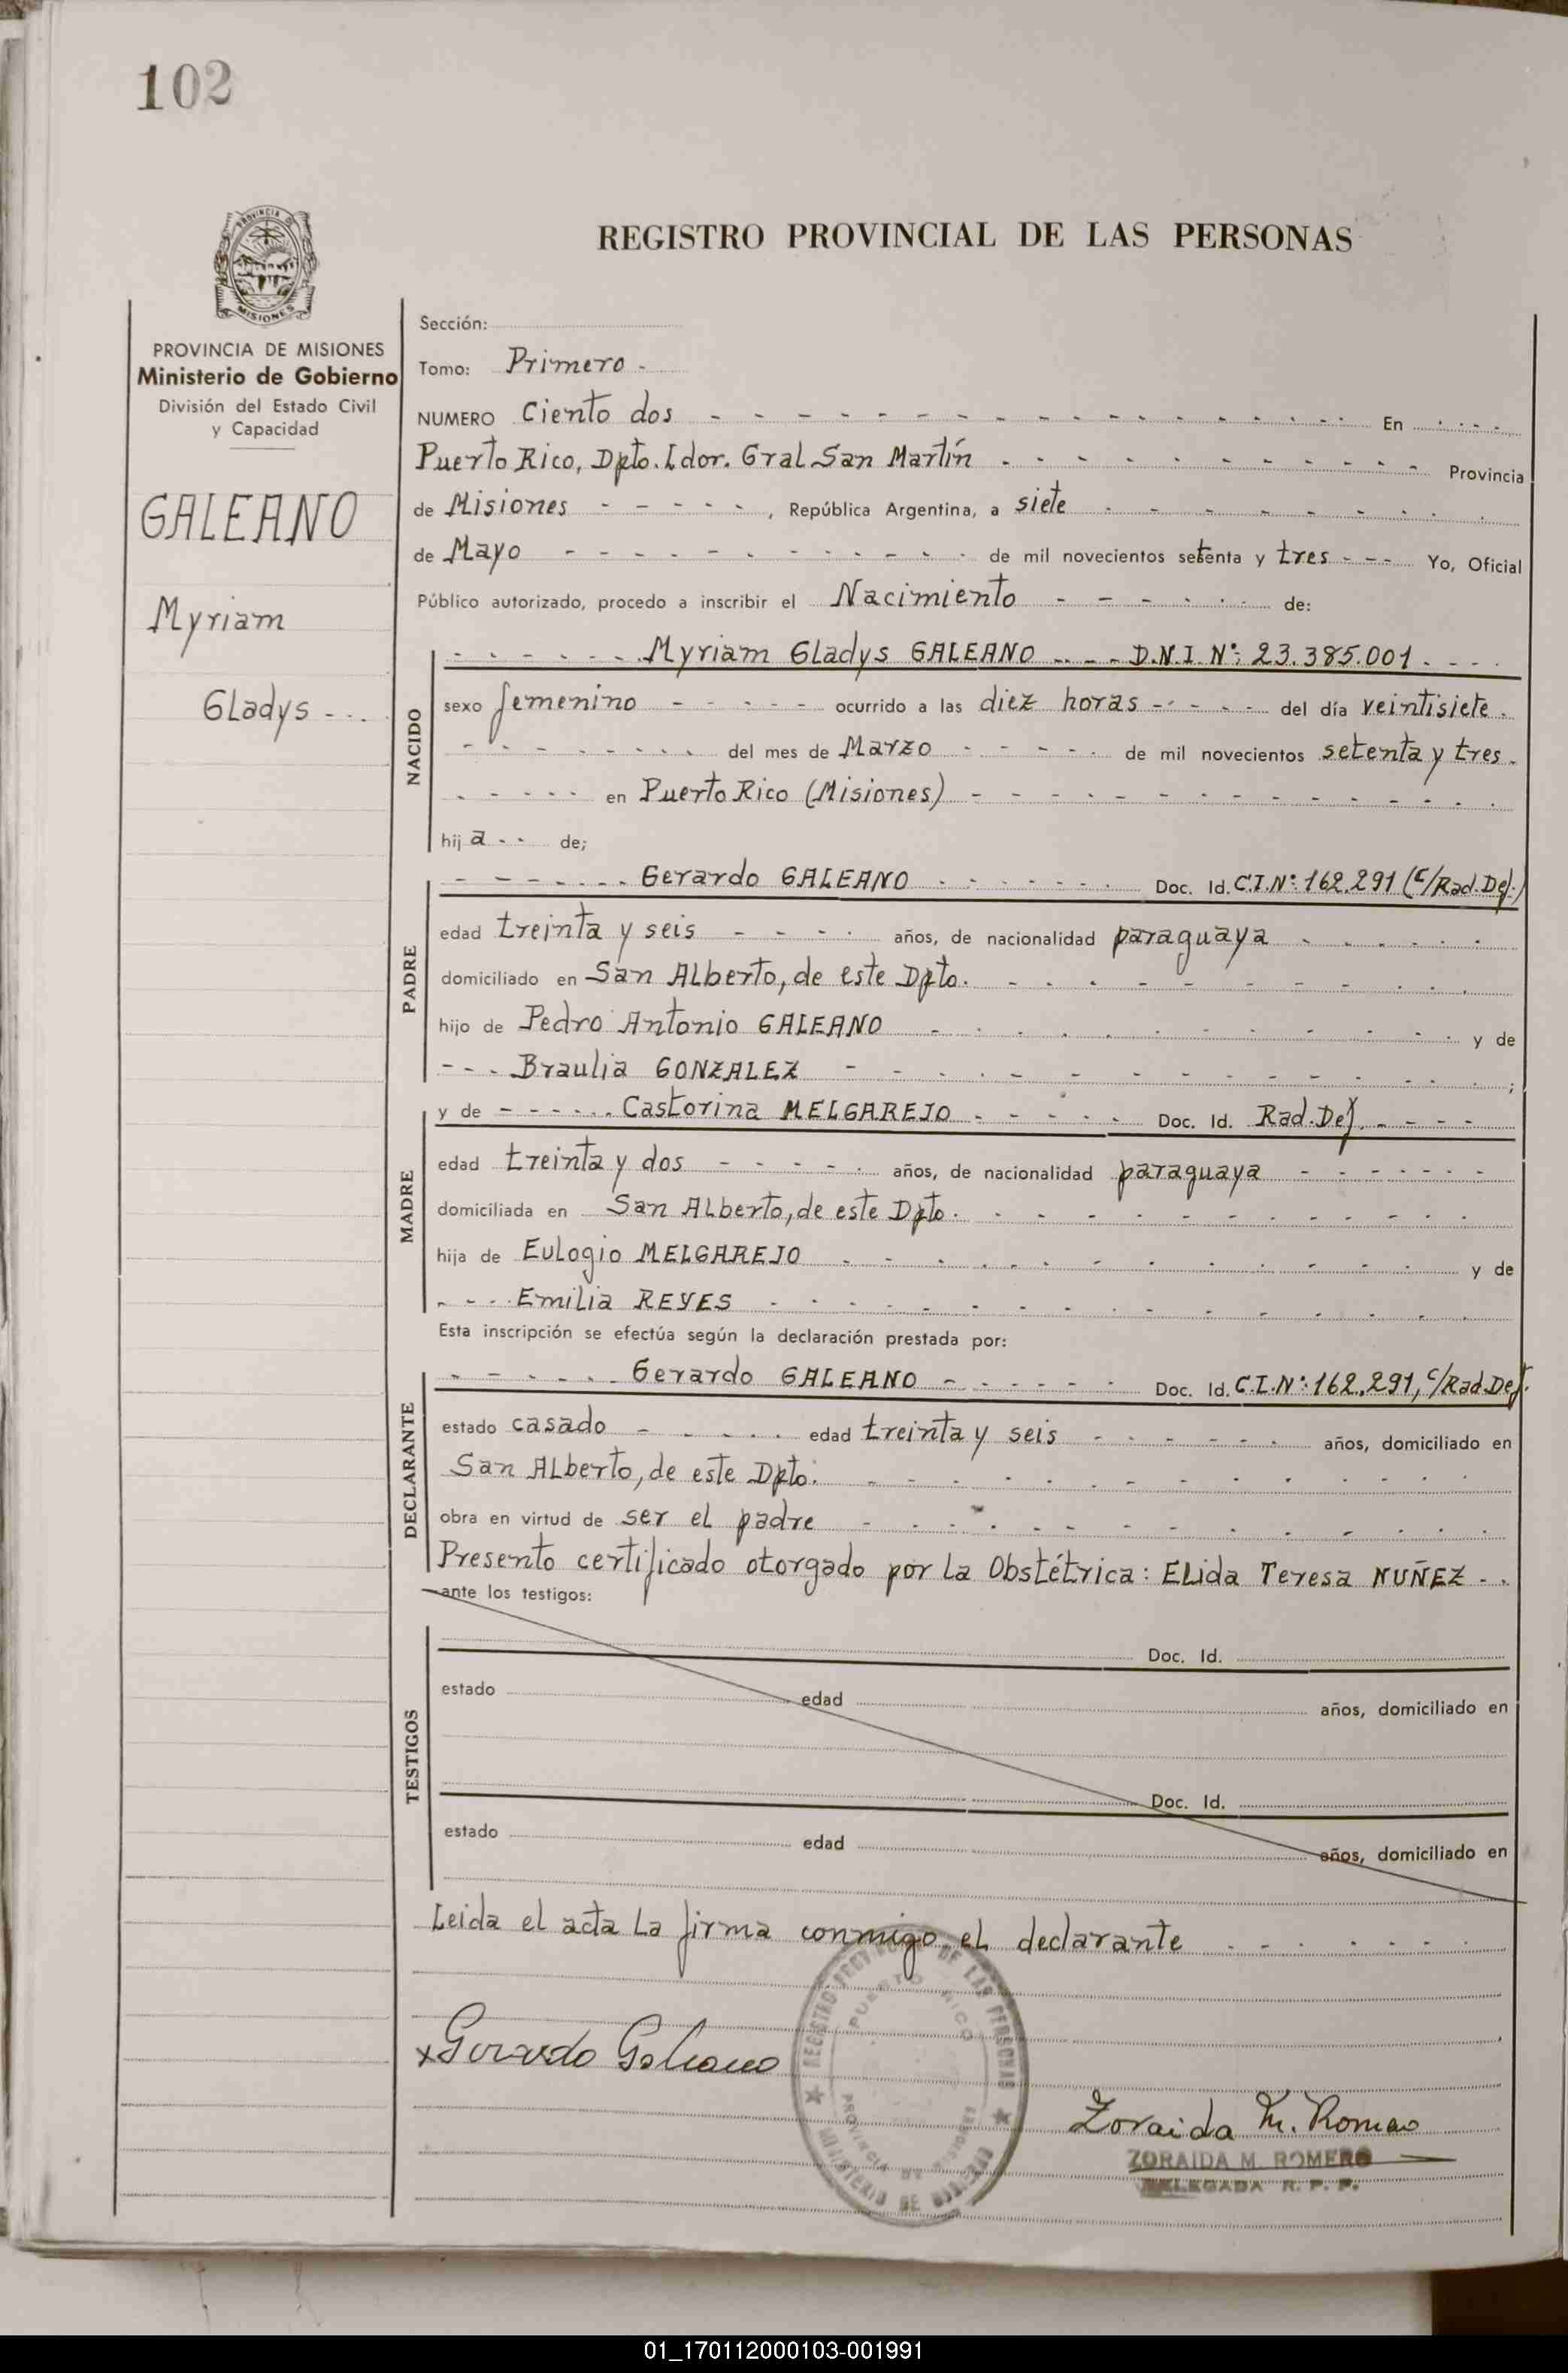 102
REGISTRO PROVINCIAL DE LAS PERSONAS
PROVINCIA DE MISIONES
Ministerio de Gobierno
División del Estado Civil
y Capacidad
GALEANO
Myriam
Gladys - . .
Sección:
Tomo: Primero -
NUMERO Ciento dos - - - En - - -
Puerto Rico, Dpto. Ldor. Gral. San Martín - - - Provincia
de Misiones - - - , República Argentina, a siete - - -
de Mayo - - - de mil novecientos setenta y tres - - - Yo, Oficial
Público autorizado, procedo a inscribir el Nacimiento - - - de:
NACIDO
- - - Myriam Gladys GALEANO - - - D.N.I. Nº: 23.385.001. - - -
sexo femenino - - - ocurrido a las diez horas - - - del día veintisiete.
- - - del mes de Marzo - - - de mil novecientos setenta y tres.
- - - en Puerto Rico (Misiones) - - -
hija - - de;
PADRE
- - - Gerardo GALEANO - - - Doc. Id. C.I.Nº: 162.291 (c/Rad.Def.)
edad treinta y seis - - - años, de nacionalidad paraguaya - - -
domiciliado en San Alberto, de este Dpto. - - -
hijo de Pedro Antonio GALEANO - - - y de
- - - Braulia GONZALEZ - - - ;
MADRE
y de - - - Castorina MELGAREJO - - - Doc. Id. Rad. Def. - - -
edad treinta y dos - - - años, de nacionalidad paraguaya - - -
domiciliada en San Alberto, de este Dpto. - - -
hija de Eulogio MELGAREJO - - - y de
- - - Emilia REYES - - -
Esta inscripción se efectúa según la declaración prestada por:
DECLARANTE
- - - Gerardo GALEANO - - - Doc. Id. C.I.Nº: 162.291, c/Rad.Def.
estado casado - - - edad treinta y seis - - - años, domiciliado en
San Alberto, de este Dpto. - - -
obra en virtud de ser el padre - - -
Presento certificado otorgado por la Obstétrica: Elida Teresa NUÑEZ - .
ante los testigos:
TESTIGOS
Doc. Id.
estado edad años, domiciliado en
Doc. Id.
estado edad años, domiciliado en
Leida el acta la firma conmigo el declarante - - -
x Gerardo Galeano
PUERTO RICO
PROVINCIA DE MISIONES
MINISTERIO DE GOBIERNO
Zoraida M. Romero
ZORAIDA M. ROMERO
DELEGADA R. P. P.
01_170112000103-001991